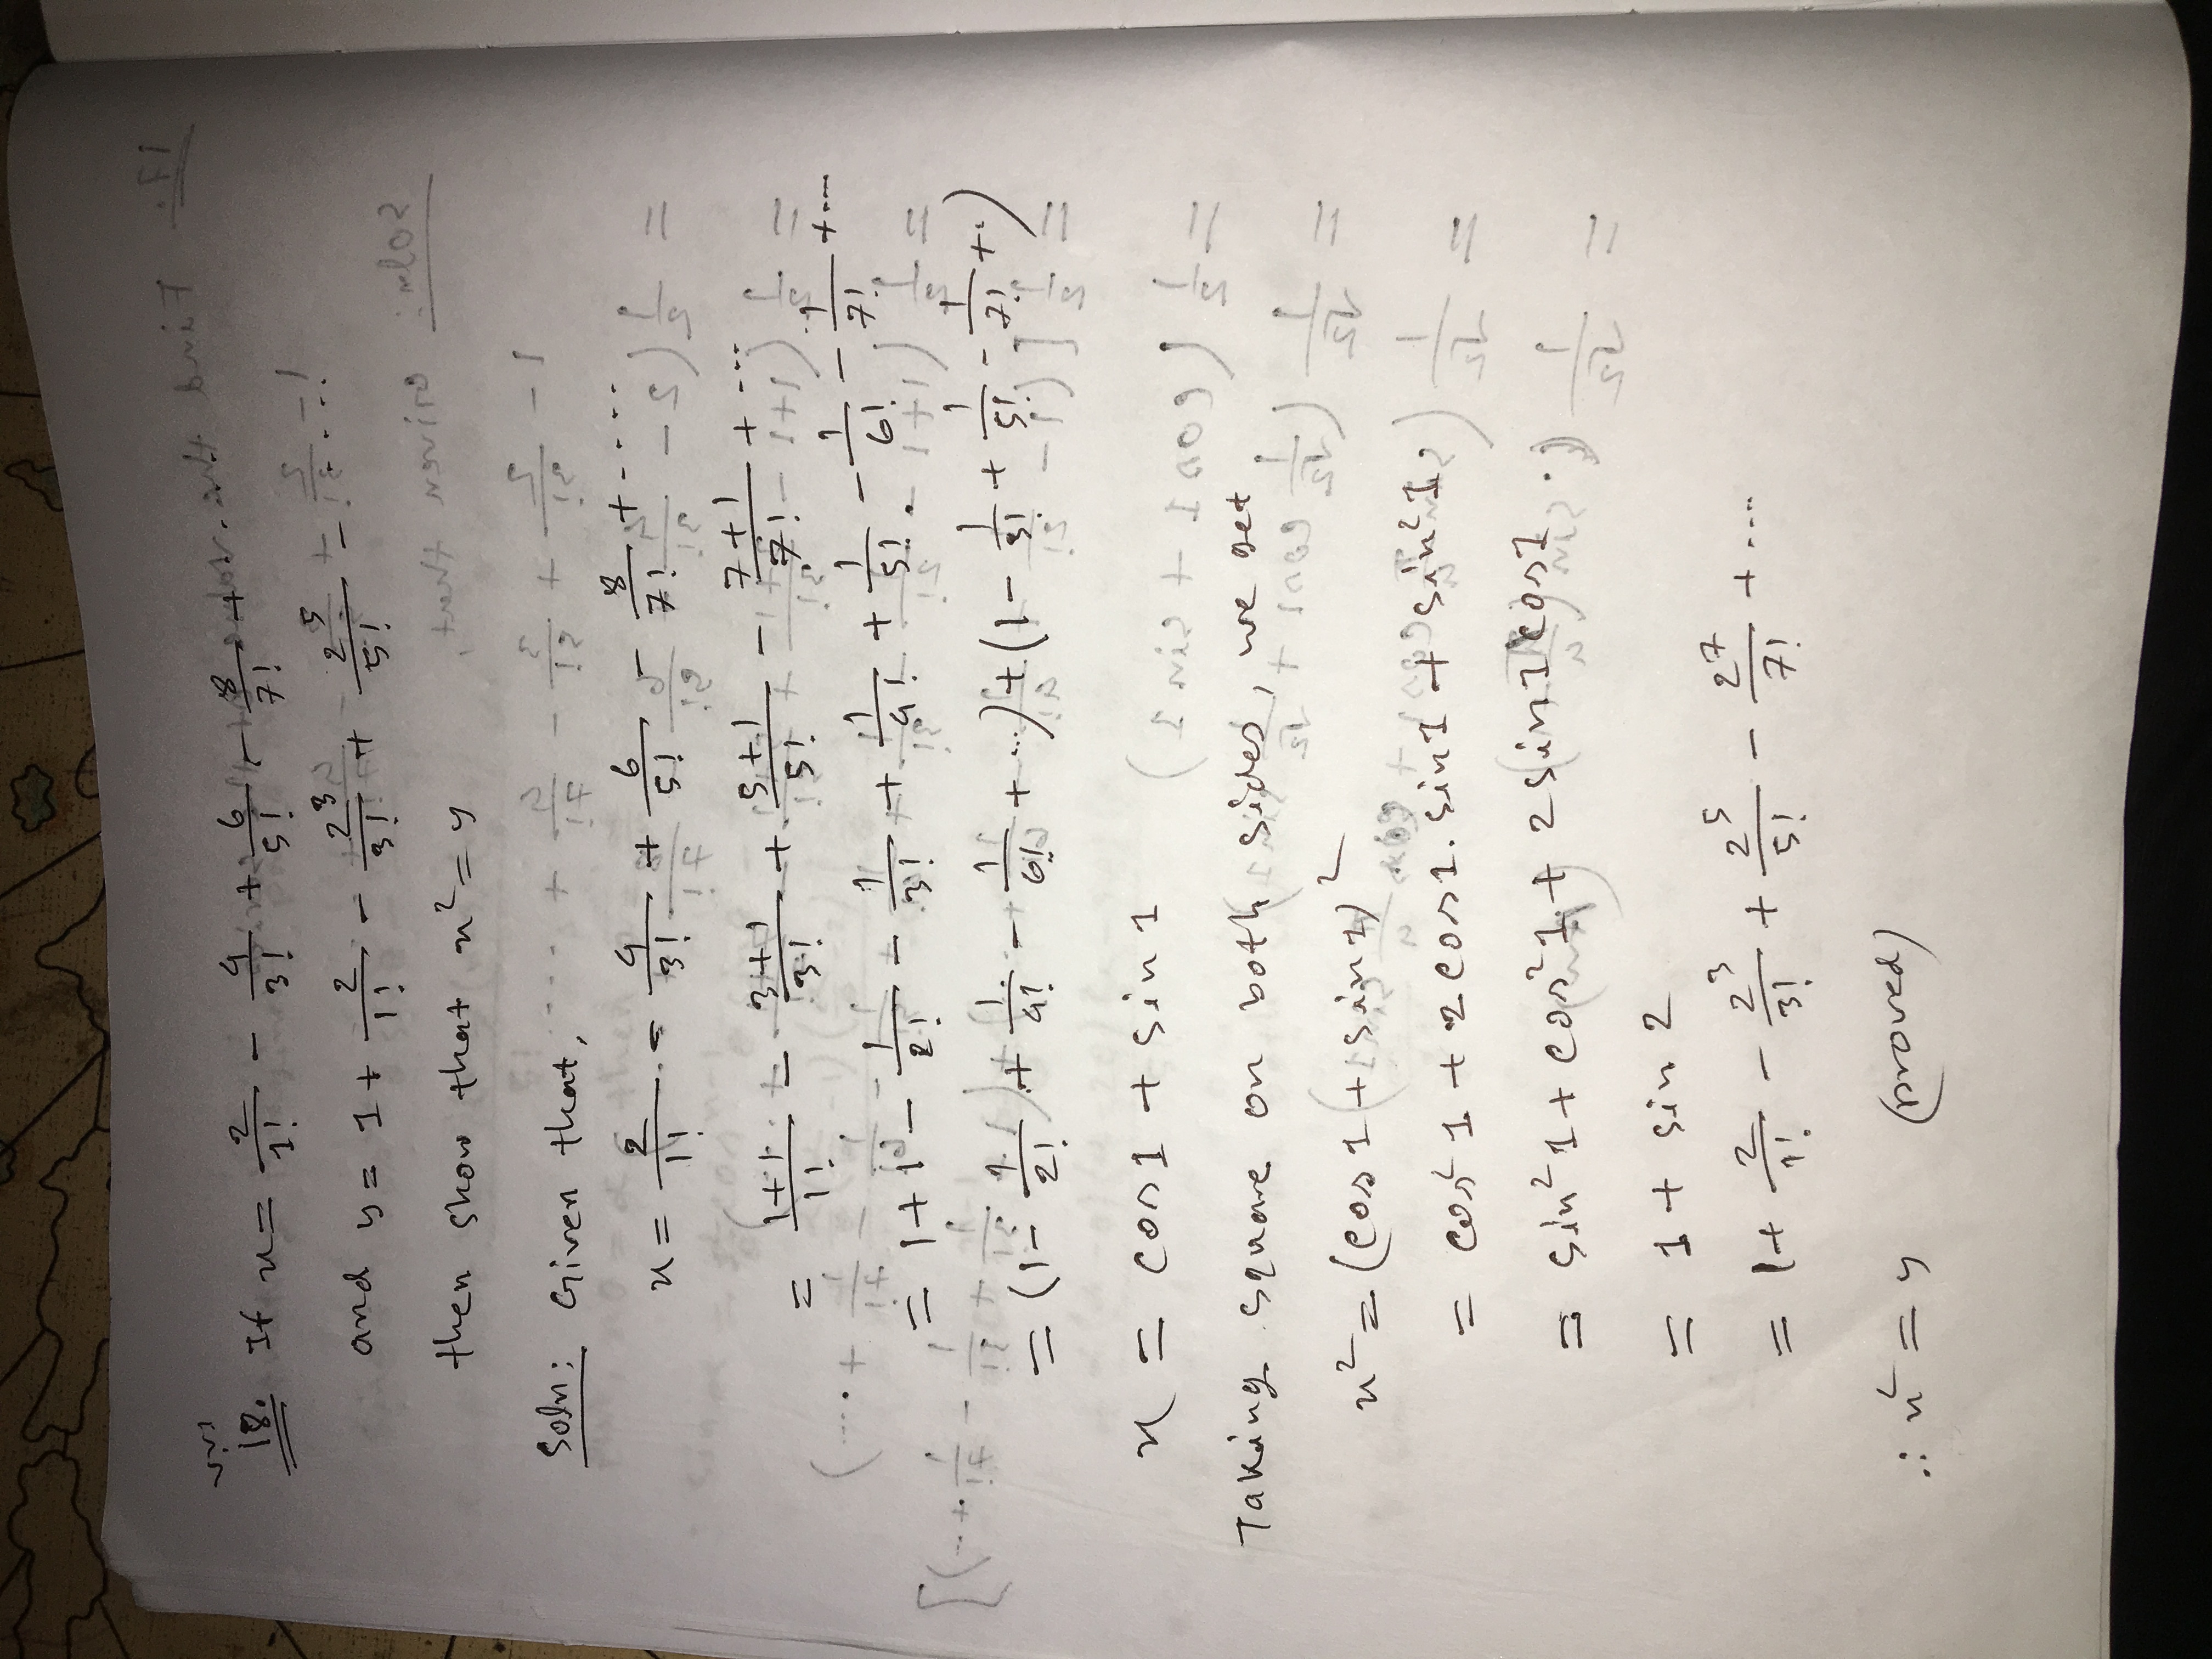 v.v.1
18. If x = 2/1! - 4/3! + 6/5! - 8/7! + ....
and y = 1 + 2/1! - 2³/3! + 2⁵/5! - ....
then show that x² = y
Soln: Given that,
x = 2/1! - 4/3! + 6/5! - 8/7! + .....
= (1+1)/1! - (3+1)/3! + (5+1)/5! - (7+1)/7! + ...
= 1 + 1 - 1/2! - 1/3! + 1/4! + 1/5! - 1/6! - 1/7! + ....
= (1 - 1/2! + 1/4! - 1/6! + ...) + (1 - 1/3! + 1/5! - 1/7! + ..)
x = cos1 + sin1
Taking square on both sides, we get
x² = (cos1 + sin1)²
= cos²1 + 2cos1.sin1 + sin²1
= sin²1 + cos²1 + 2sin1cos1.
= 1 + sin2
= 1 + 2/1! - 2³/3! + 2⁵/5! - 2⁷/7! + ....
∴ x² = y (proved)